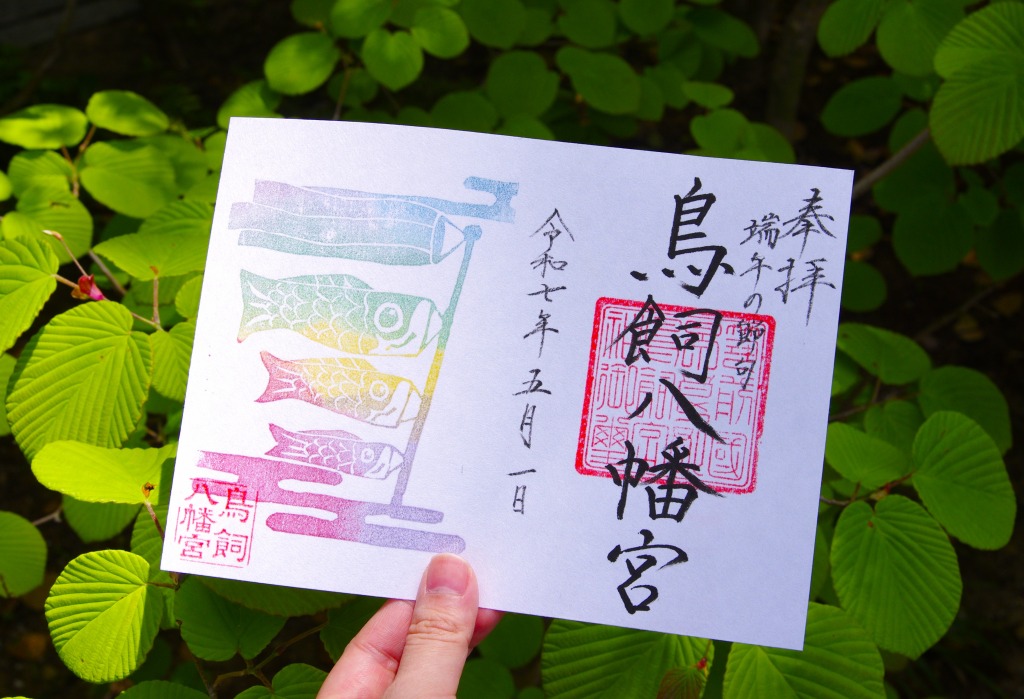 奉拝
端午の節句
鳥飼八幡宮
令和七年 五月一日
鳥飼
八幡宮